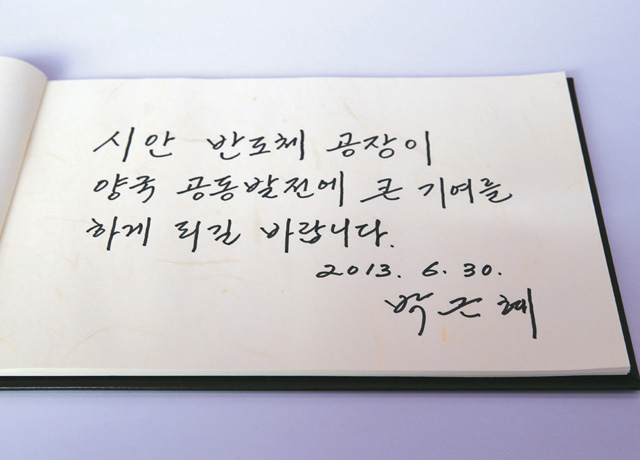 시안 반도체 공장이
양국 공동발전에 큰 기여를
하게 되길 바랍니다.
2013. 6. 30.
박근혜